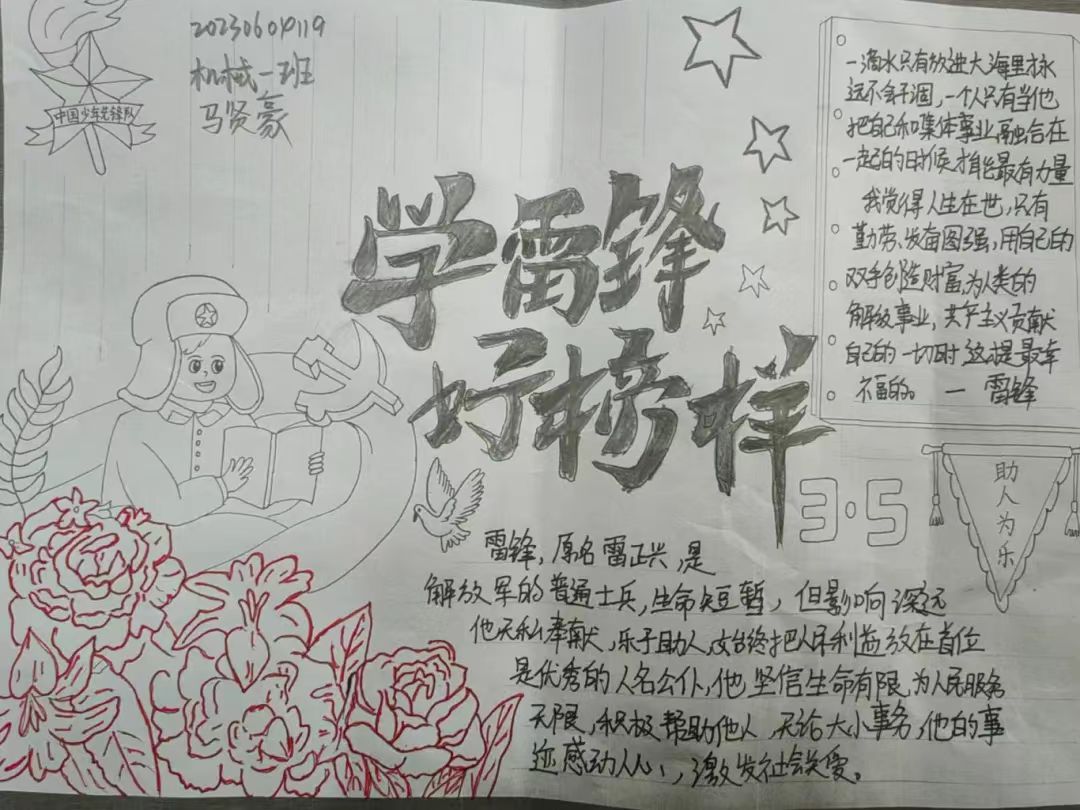 20230604119
机械一班
马贤豪
中国少年先锋队
学雷锋
好榜样
一滴水只有放进大海里才永
远不会干涸，一个人只有当他
把自己和集体事业融合在
一起的时候才能最有力量
我觉得人生在世，只有
勤劳、发奋图强，用自己的
双手创造财富，为人类的
解放事业，共产主义贡献
自己的一切时这才是最幸
福的。 — 雷锋
3·5
助人为乐
雷锋，原名雷正兴，是
解放军的普通士兵，生命短暂，但影响深远
他无私奉献，乐于助人，始终把人民利益放在首位
是优秀的人名公仆，他坚信生命有限，为人民服务
无限，积极帮助他人，无论大小事务，他的事
迹感动人心，激发社会关爱。